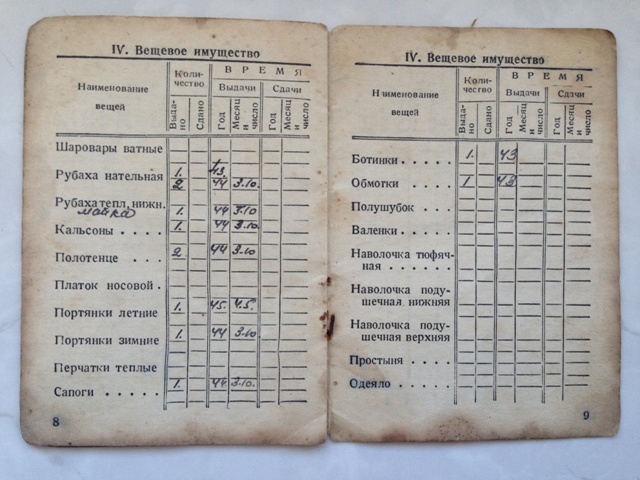 IV. Вещевое имущество
Наименование вещей
Количество
ВРЕМЯ
Выдачи
Сдачи
Выдано
Сдано
Год
Месяц и число
Год
Месяц и число
Шаровары ватные
Рубаха нательная 1. 43.
2 44 3.10.
Рубаха тепл. нижн.
майка 1. 44 3.10
Кальсоны . . . . 1. 44 3.10.
Полотенце . . . 2 44 3.10
Платок носовой .
Портянки летние 1. 45. 4.5.
Портянки зимние 1. 44 3.10
Перчатки теплые
Сапоги . . . . . 1. 44 3.10.
8
IV. Вещевое имущество
Наименование вещей
Количество
ВРЕМЯ
Выдачи
Сдачи
Выдано
Сдано
Год
Месяц и число
Год
Месяц и число
Ботинки . . . . . 1. 43
Обмотки . . . . 1 43
Полушубок . . .
Валенки . . . . .
Наволочка тюфяч-
ная . . . . . . .
Наволочка поду-
шечная нижняя
Наволочка поду-
шечная верхняя
Простыня . . . .
Одеяло . . . . .
9